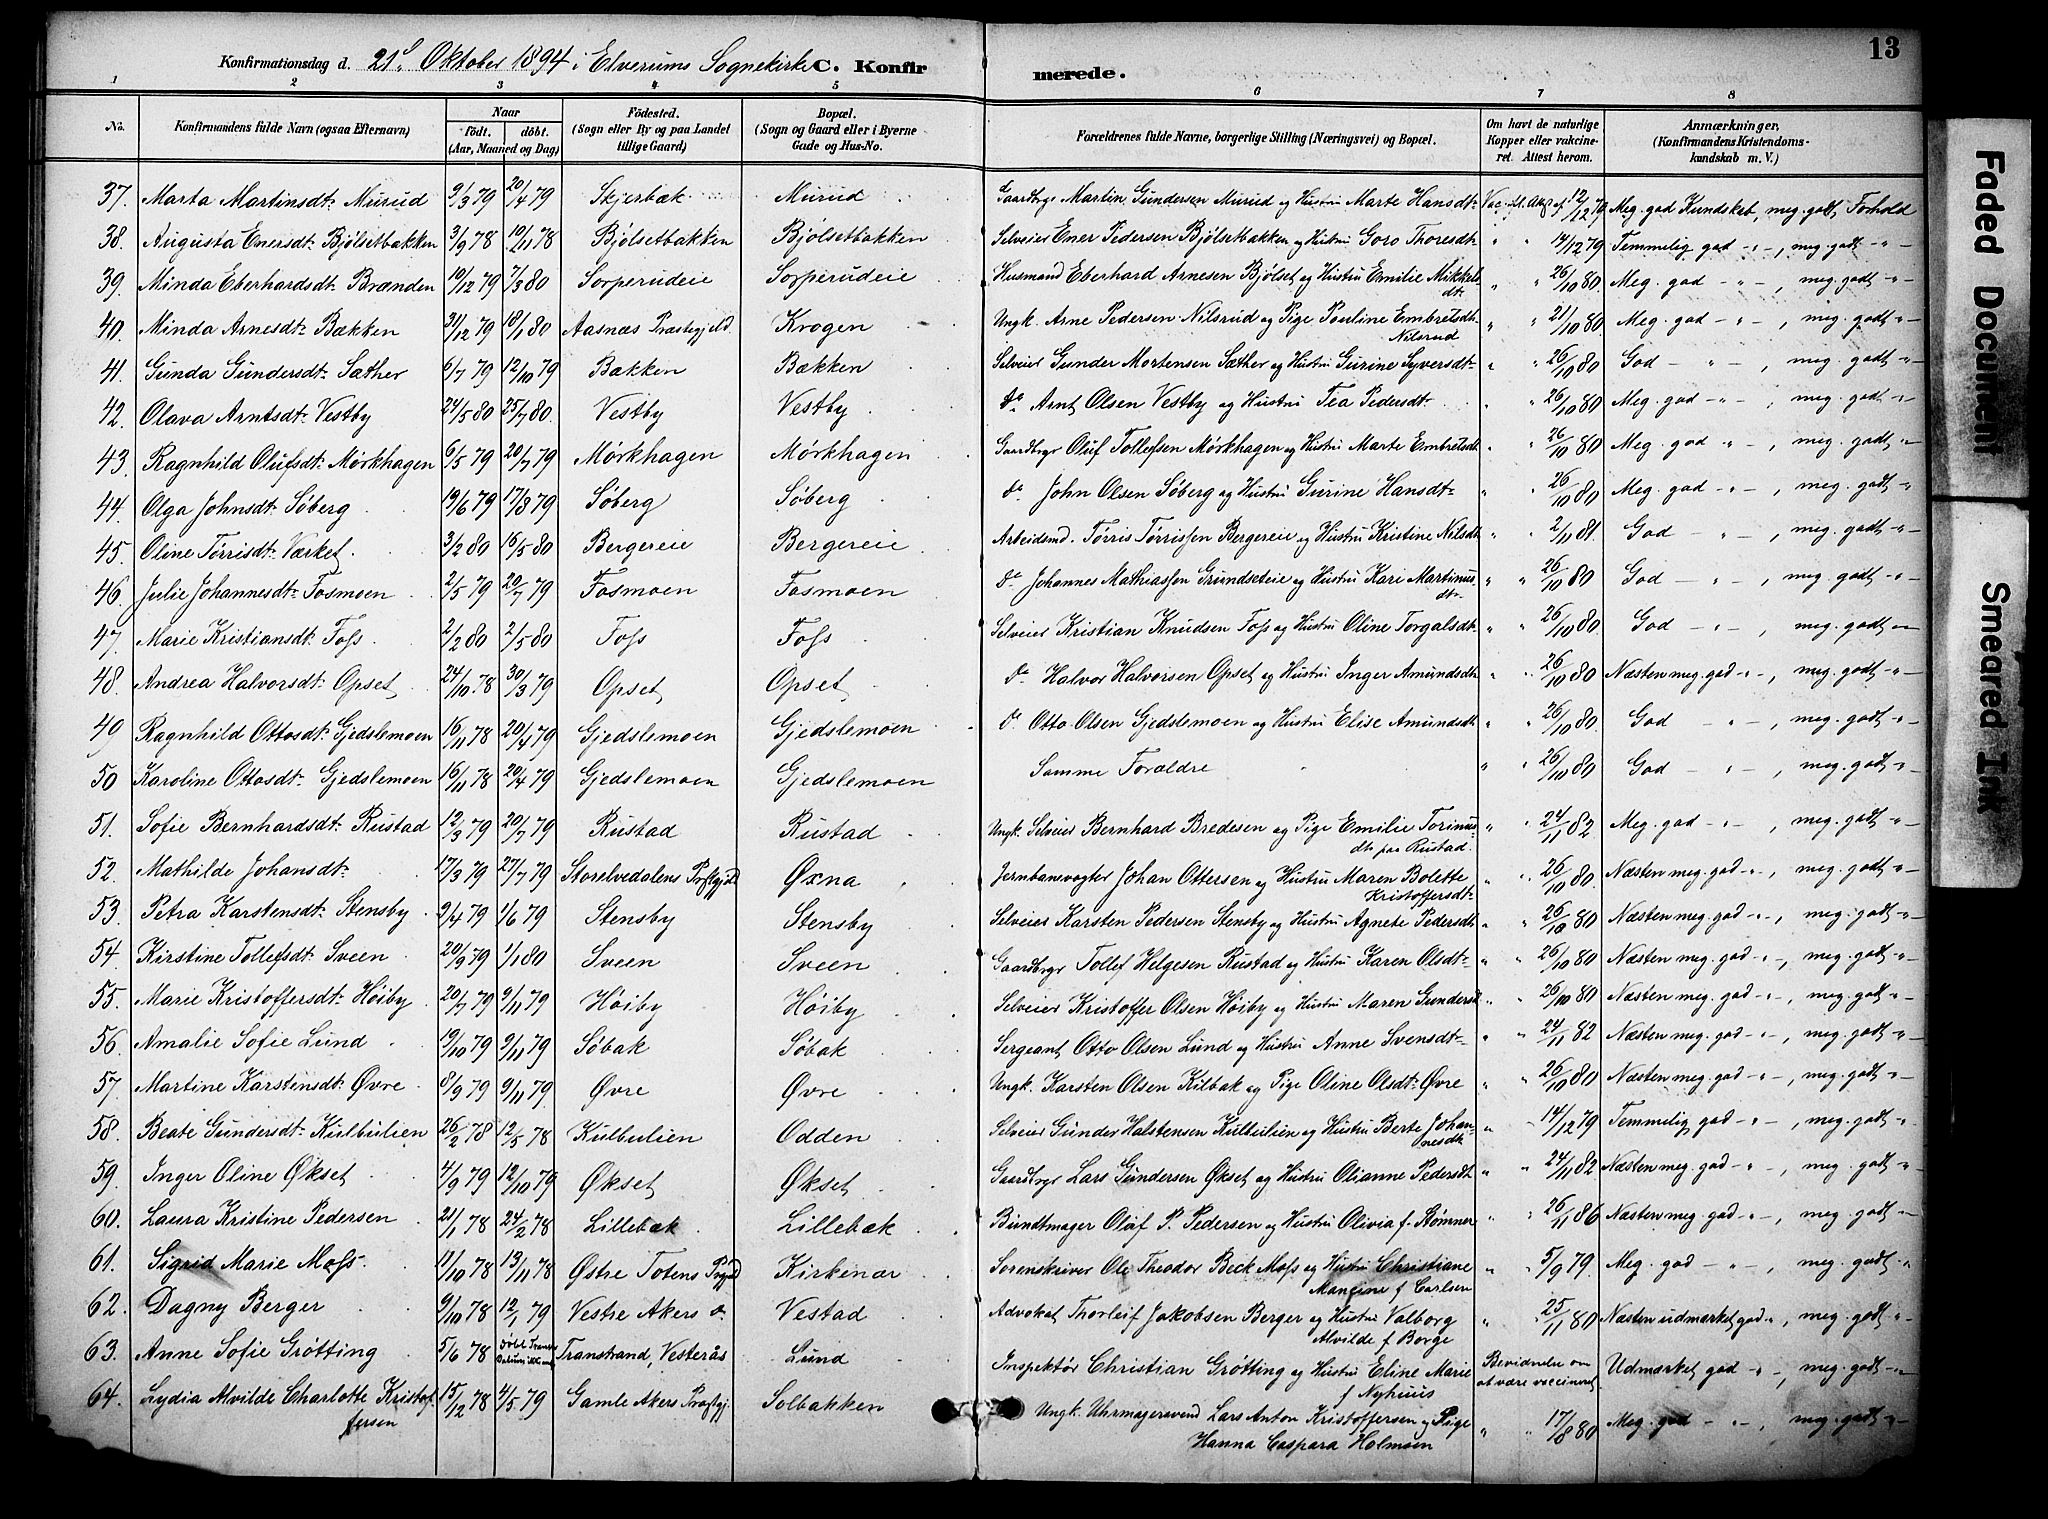 Konfirmationsdag d. 21de Oktober 1894 i Elverums Sognekirke C. Konfirmerede. 13
1 2 3 4 5 6 7 8
No. Konfirmandens fulde Navn (ogsaa Efternavn) Naar født. døbt. (Aar, Maaned og Dag) Fødested. (Sogn eller By og paa Landet tillige Gaard) Bopæl. (Sogn og Gaard eller i Byerne Gade og Hus-No. Forældrenes fulde Navne, borgerlige Stilling (Næringsvei) og Bopæl. Om havt de naturlige Kopper eller vakcineret. Attest herom. Anmærkninger. (Konfirmandens Kristendomskundskab m. V.)
37. Marta Martinsdt. Murud 9/3 79 20/4 79 Skjerbæk Murud Gaardbrgr Martin Gundersen Murud og Hustru Marte Hansdt. Vac. 12/12 79 Meg. god Kundskab, meg. godt Forhold
38. Augusta Enersdt. Bjølsetbakken 3/9 78 10/11 78 Bjølsetbakken Bjølsetbakken Selveier Ener Pedersen Bjølsetbakken og Hustru Goro Thoresdt. " " 14/12 79 Temmelig god -"-, meg. godt -"-
39. Minda Eberhardsdt. Brænden 10/12 79 7/3 80 Sorperudeie Sorperudeie Husmand Eberhard Arnesen Bjølset og Hustru Emilie Mikkelsdt. " " 26/10 80. Meg. god -"-, meg. godt -"-
40. Minda Arnesdt. Bækken 31/12 79 18/1 80 Aasnæs Præstegjeld. Krogen Ungk. Arne Pedersen Nilsrud og Pige Pauline Embretsdt. Nilsrud " " 21/10 80. Meg. god -"-, meg. godt -"-
41. Gunda Gundersdt. Sæther 6/7 79 12/10 79 Bækken Bækken Selveier Gunder Mortensen Sæther og Hustru Gurine Syversdt. " " 26/10 80 God -"-, meg. godt -"-
42. Olava Arntsdt. Vestby 24/5 80 25/7 80 Vestby Vestby do. Arnt Olsen Vestby og Hustru Tea Pedersdt. " " 26/10 80 Meg. god -"-, meg. godt -"-
43. Ragnhild Olufsdt. Mørkhagen 6/5 79 20/7 79 Mørkhagen Mørkhagen Gaardbrgr Oluf Tollefsen Mørkhagen og Hustru Marte Embretsdt. " " 26/10 80 Meg. god -"-, meg. godt -"-
44. Olga Johnsdt. Søberg 19/6 79 17/8 79 Søberg Søberg do. John Olsen Søberg og Hustru Gurine Hansdt. " " 26/10 80 Meg. god -"-, meg. godt -"-
45. Oline Tørrisdt. Værket 3/2 80 16/5 80 Bergereie Bergereie Arbeidsmd. Tørris Tørrissen Bergereie og Hustru Kristine Nilsdt. " " 2/11 81. God -"-, meg. godt -"-
46. Julie Johannesdt. Fosmoen 2/5 79 20/7 79 Fosmoen Fosmoen do. Johannes Mathiassen Grundseteie og Hustru Kari Martinusdt. " " 26/10 80 God -"-, meg. godt -"-
47. Marie Kristiansdt. Foss 2/2 80 2/5 80 Foss Foss Selveier Kristian Knudsen Foss og Hustru Oline Torgalsdt. " " 26/10 80. God -"-, meg. godt -"-
48. Andrea Halvorsdt. Opset 24/10 78 30/3 79 Opset Opset do. Halvor Halvorsen Opset og Hustru Inger Amundsdt. " " 26/10 80 Næsten meg. god -"-, meg. godt -"-
49 Ragnhild Ottosdt. Gjedslemoen 16/11 78 20/4 79 Gjedslemoen Gjedslemoen do. Otto Olsen Gjedslemoen og Hustru Elise Amundsdt. " " 26/10 80. God -"-, meg. godt -"-
50 Karoline Ottosdt. Gjedslemoen 16/11 78 20/4 79 Gjedslemoen Gjedslemoen Samme Forældre " " 26/10 80 God -"-, meg. godt -"-
51. Sofie Bernhardsdt. Rustad 12/3 79 20/7 79 Rustad Rustad Ungk. Selveier Bernhard Bredesen og Pige Emilie Torinusdt. paa Rustad. " " 24/11 82 Meg. god -"-, meg. godt -"-
52. Mathilde Johansdt. 17/3 79 27/7 79 Storelvedalens Præstgjeld Øxna Jernbanevogter Johan Ottersen og Hustru Maren Bolette Kristoffersdt. " " 26/10 80. Næsten meg. god -"-, meg. godt -"-
53. Petra Karstensdt. Stensby 9/4 79 1/6 79 Stensby Stensby Selveier Karsten Pedersen Stensby og Hustru Agnete Pedersdt. " " 26/10 80 Næsten meg. god -"-, meg. godt -"-
54. Kirstine Tollefsdt. Sveen 20/9 79 1/1 80 Sveen Sveen Gaardbrgr Tollef Helgesen Rustad og Hustru Karen Olsdt. " " 26/10 80 Næsten meg. god -"-, meg. godt -"-
55. Marie Kristoffersdt. Høiby 20/7 79 9/11 79 Høiby Høiby Selveier Kristoffer Olsen Høiby og Hustru Maren Gundersd. " " 26/10 80 Næsten meg. god -"-, meg. godt -"-
56. Amalie Sofie Lund 19/10 79 9/11 79 Søbak Søbak Sergeant Otto Olsen Lund og Hustru Anne Svensdt. " " 24/11 82 Næsten meg. god -"-, meg. godt -"-
57. Martine Karstensdt. Øvre 8/9 79 9/11 79 Øvre Øvre Ungk. Karsten Olsen Kilbak og Pige Oline Olsdt. Øvre " " 26/10 80 Næsten meg. god -"-, meg. godt -"-
58. Beate Gundersdt. Kulbulien 26/2 78 12/5 78 Kulbulien Odden Selveier Gunder Halstensen Kulbulien og Hustru Berte Johannesdt. " " 14/12 79 Temmelig god -"-, meg. godt -"-
59. Inger Oline Økset 4/9 79 12/10 79 Økset Økset Gaardbrgr Lars Gundersen Økset og Hustru Olianne Pedersdt. " " 24/11 82 Næsten meg. god -"-, meg. godt -"-
60. Laura Kristine Pedersen 21/1 78 24/2 78 Lillebæk Lillebæk Bundtmager Olaf P. Pedersen og Hustru Olivia f. Rømner " " 26/11 86 Næsten meg. god -"-, meg. godt -"-
61. Sigrid Marie Moss 11/10 78 13/11 78 Østre Totens Prgjd Kirkenær Sorenskriver Ole Theodor Beck Moss og Hustru Christiane Mancine f Carlsen " " 5/9 79. Meg. god -"-, meg. godt -"-
62. Dagny Berger 9/10 78 12/1 79 Vestre Akers do. Vestad Advokat Thorleif Jakobsen Berger og Hustru Valborg Alvilde f Borge " " 25/11 80 Næsten udmærket god -"-, meg. godt -"-
63. Anne Sofie Grøtting 5/6 78 Transtrand, Vesterås Lund Inspektør Christian Grøtting og Hustru Eline Marie f Nyhuus Bevidnelse om at være vaccineret Udmærket god -"-, meg. godt -"-
64. Lydia Alvilde Charlotte Kristoffersen 15/12 78 4/5 79 Gamle Akers Præstgj. Solbakken Ungk. Uhrmagersvend Lars Anton Kristoffersen og Pige Hanna Caspara Holmsen " " 17/8 80 Meg. god -"-, meg. godt -"-
Faded Document
Smeared Ink